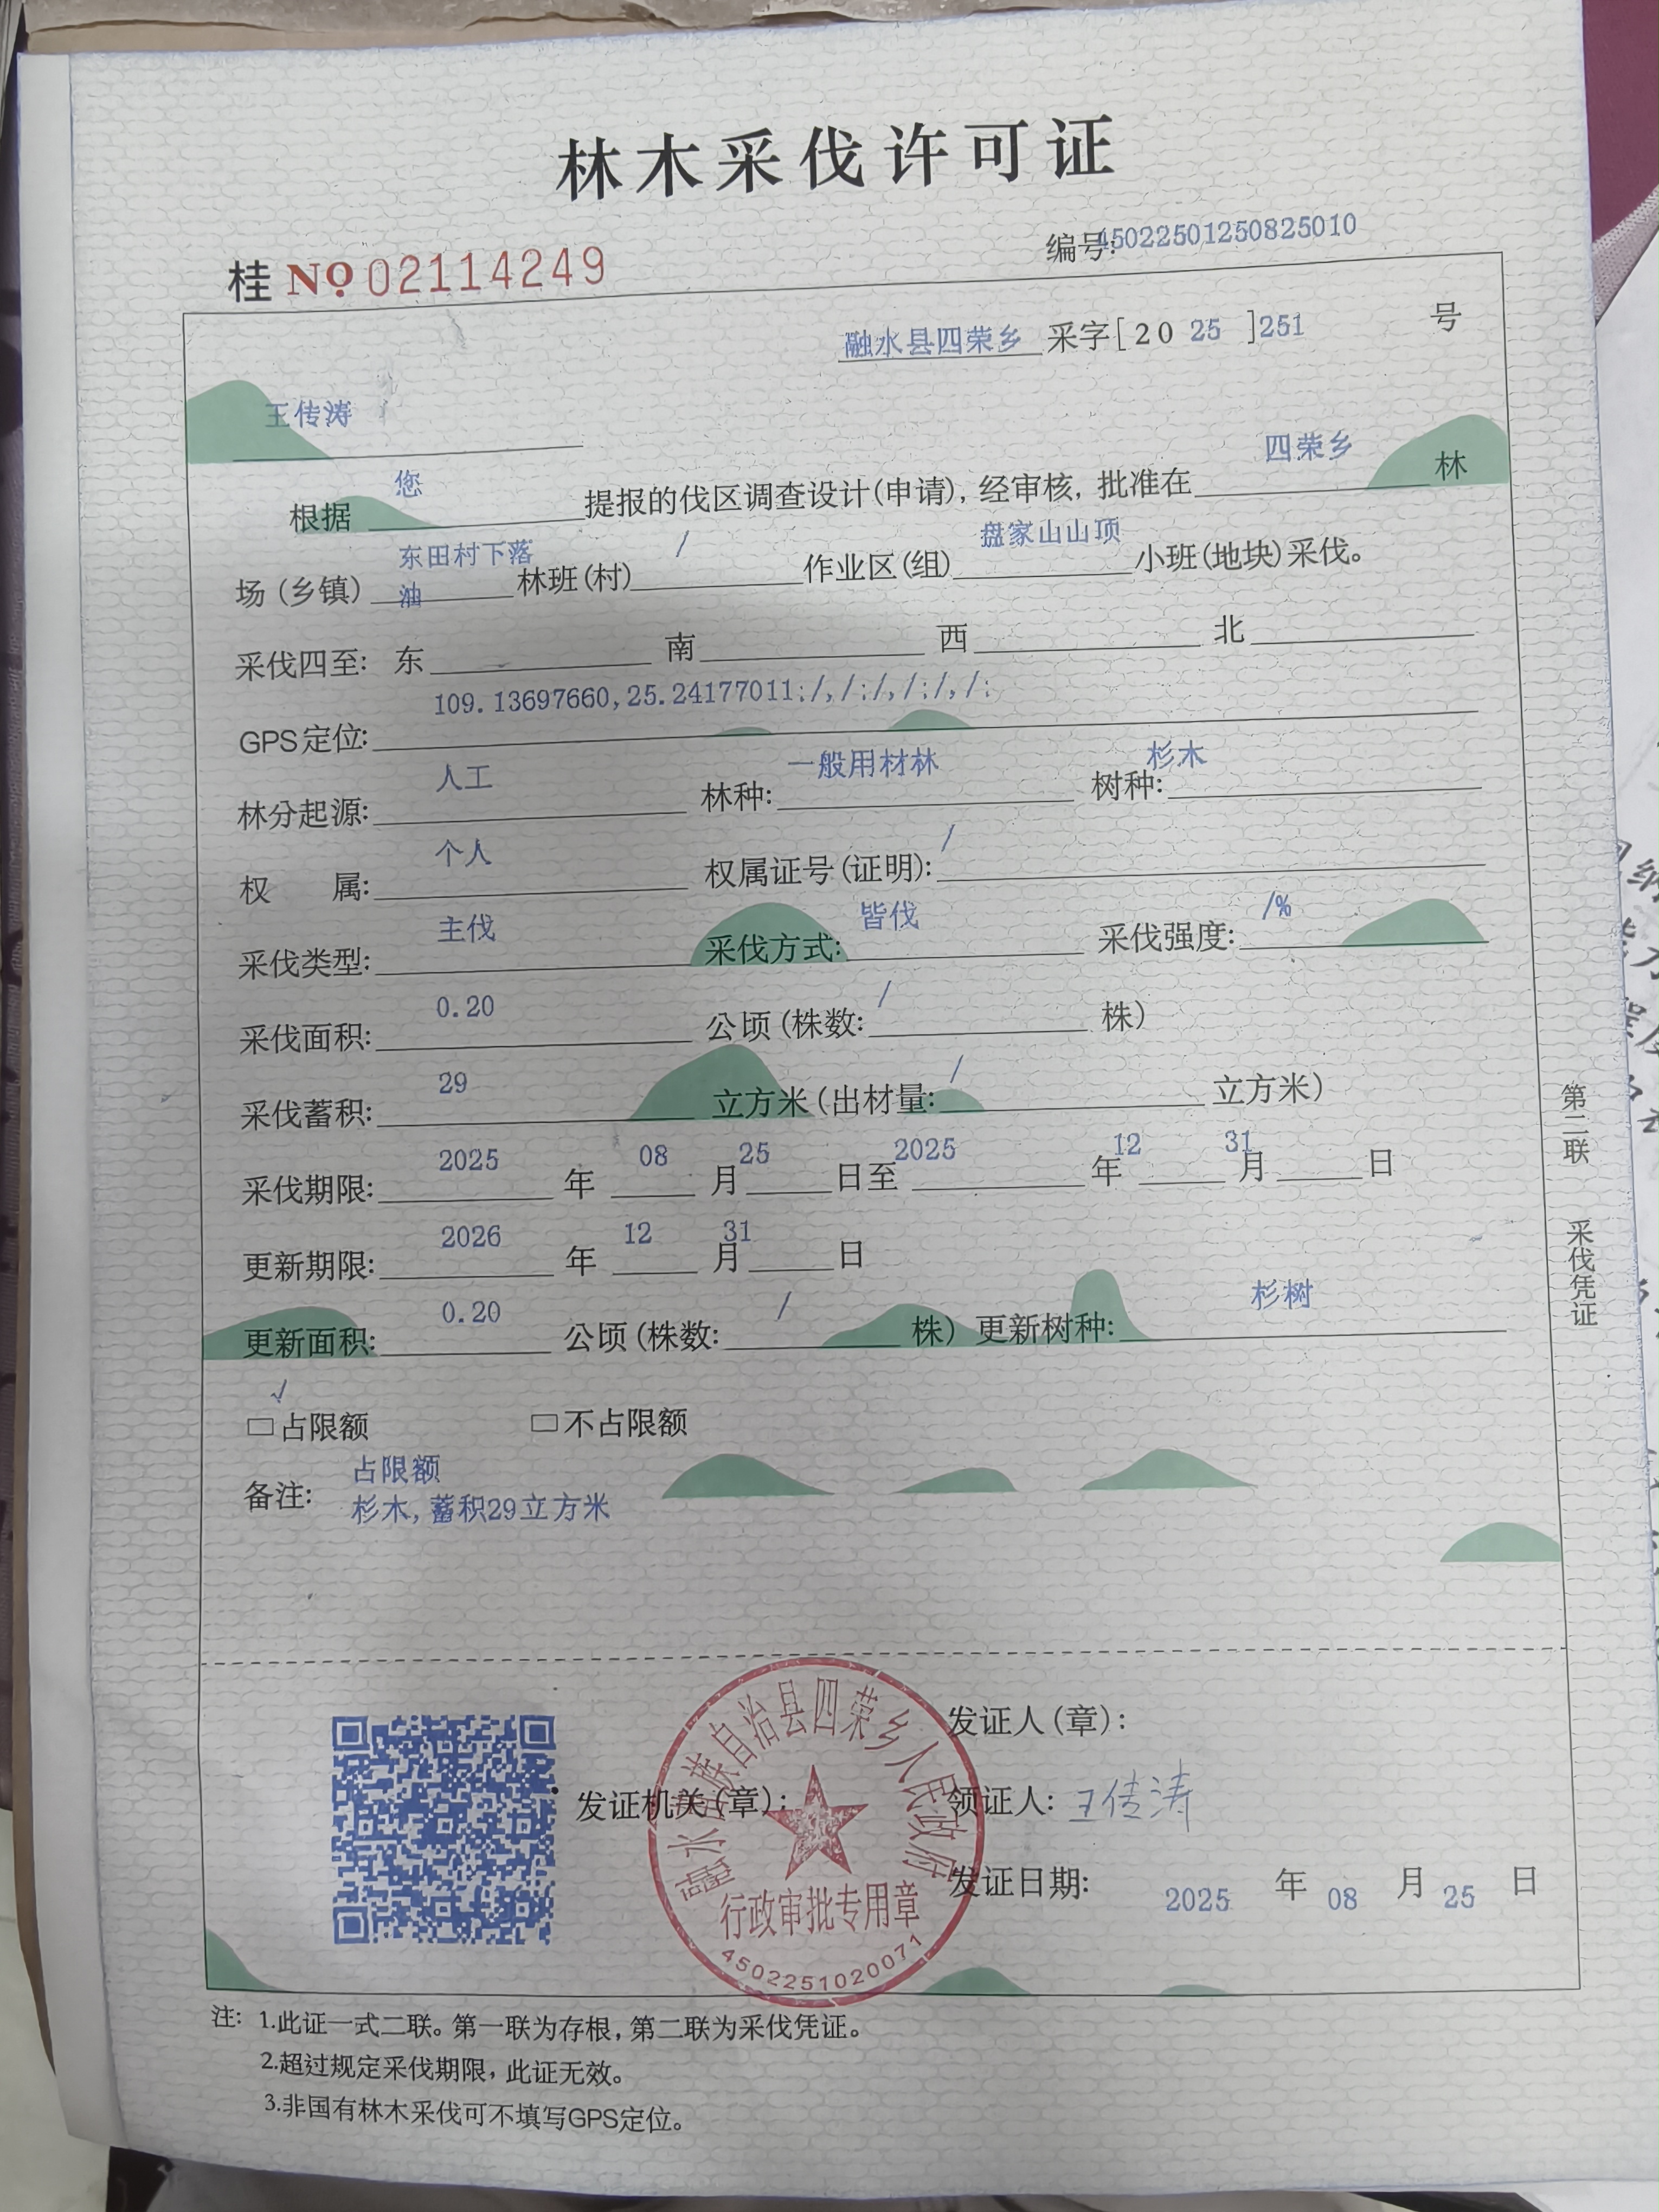 林木采伐许可证
桂 No 02114249
编号:45022501250825010
融水县四荣乡 采字[20 25 ]251 号
王传涛
根据 您 提报的伐区调查设计(申请), 经审核, 批准在 四荣乡 林
场(乡镇) 东田村下落油 林班(村) / 作业区(组) 盘家山山顶 小班(地块)采伐。
采伐四至: 东 南 西 北
GPS定位: 109.13697660,25.24177011;/,/;/,/;/,/;
林分起源: 人工 林种: 一般用材林 树种: 杉木
权 属: 个人 权属证号(证明): /
采伐类型: 主伐 采伐方式: 皆伐 采伐强度: /%
采伐面积: 0.20 公顷(株数: / 株)
采伐蓄积: 29 立方米(出材量: / 立方米)
采伐期限: 2025 年 08 月 25 日至 2025 年 12 月 31 日
更新期限: 2026 年 12 月 31 日
更新面积: 0.20 公顷(株数: / 株) 更新树种: 杉树
√
□占限额 □不占限额
备注: 占限额
杉木, 蓄积29立方米
第二联 采伐凭证
发证人(章):
发证机关(章):
领证人: 王传涛
发证日期: 2025 年 08 月 25 日
融水苗族自治县四荣乡人民政府
行政审批专用章
4502251020071
注: 1.此证一式二联。第一联为存根, 第二联为采伐凭证。
2.超过规定采伐期限, 此证无效。
3.非国有林木采伐可不填写GPS定位。